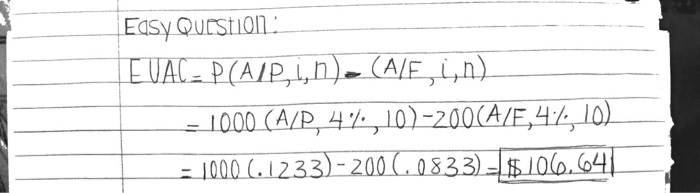 Easy Question:
EUAC = P(A/P, i, n) - (A/F, i, n)
= 1000 (A/P, 4%, 10) - 200(A/F, 4%, 10)
= 1000 (.1233) - 200 (.0833) = $106.64